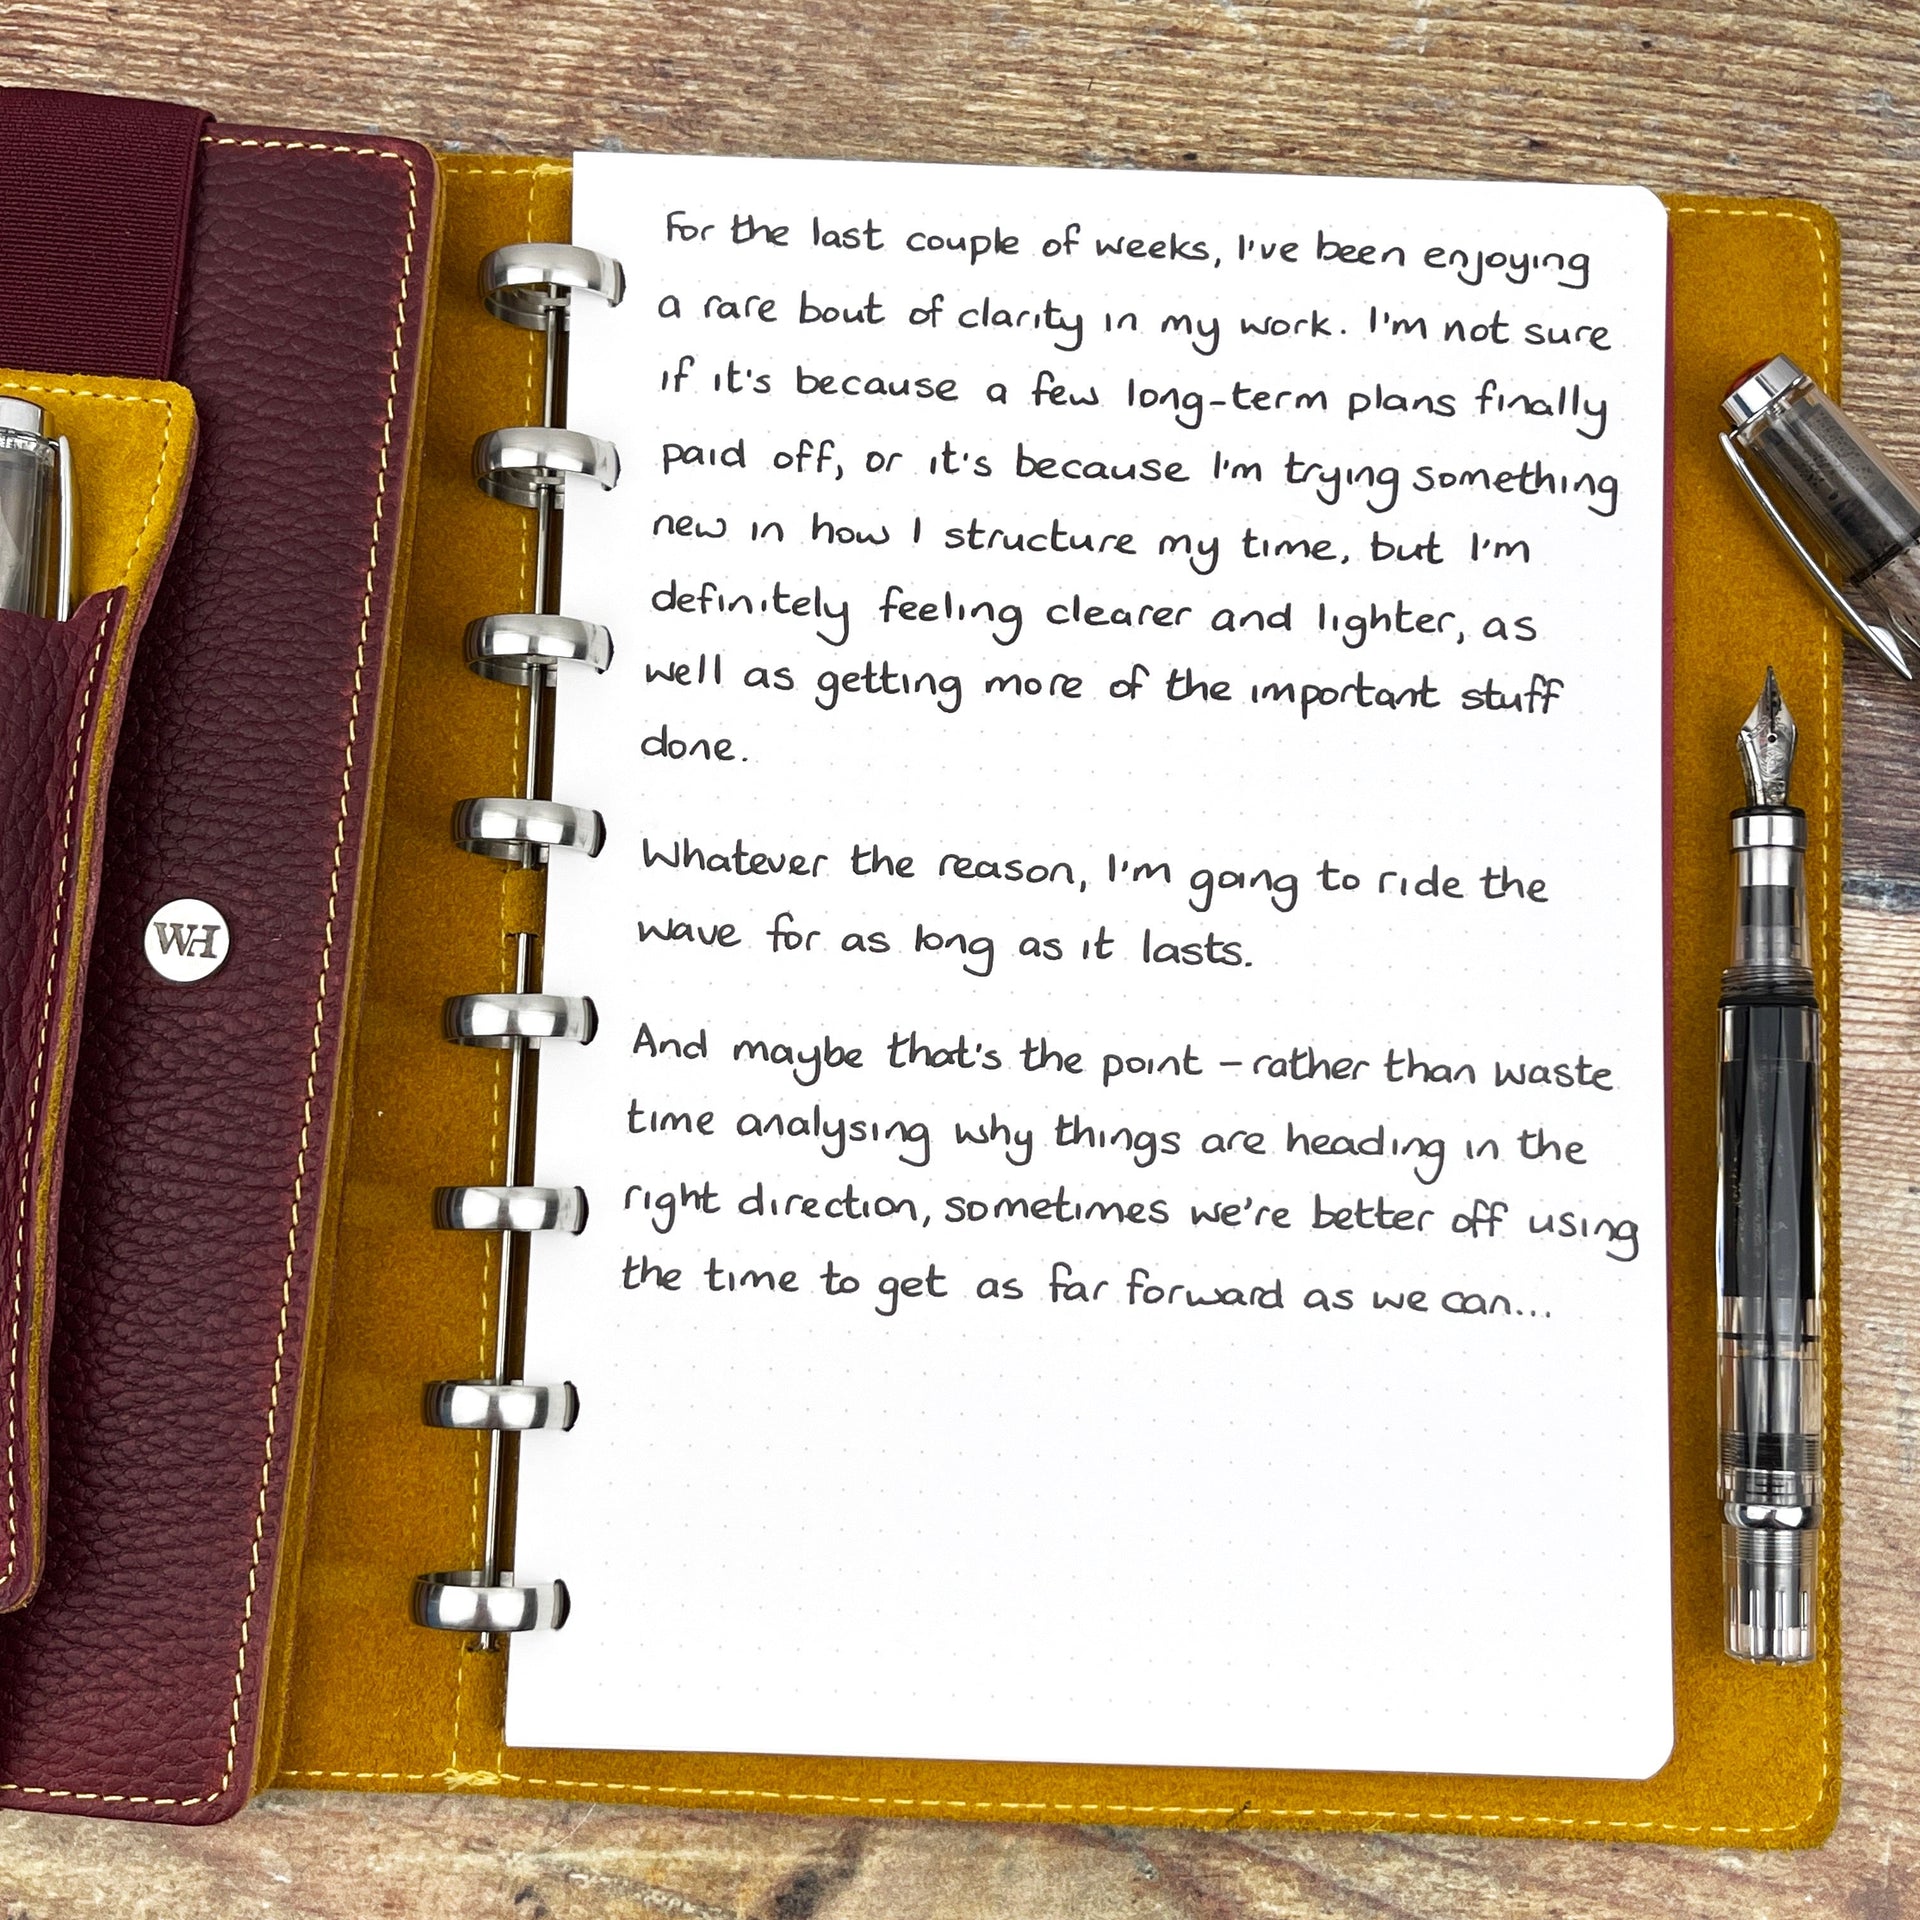 WH
For the last couple of weeks, I've been enjoying
a rare bout of clarity in my work. I'm not sure
if it's because a few long-term plans finally
paid off, or it's because I'm trying something
new in how I structure my time, but I'm
definitely feeling clearer and lighter, as
well as getting more of the important stuff
done.
Whatever the reason, I'm going to ride the
wave for as long as it lasts.
And maybe that's the point – rather than waste
time analysing why things are heading in the
right direction, sometimes we're better off using
the time to get as far forward as we can...